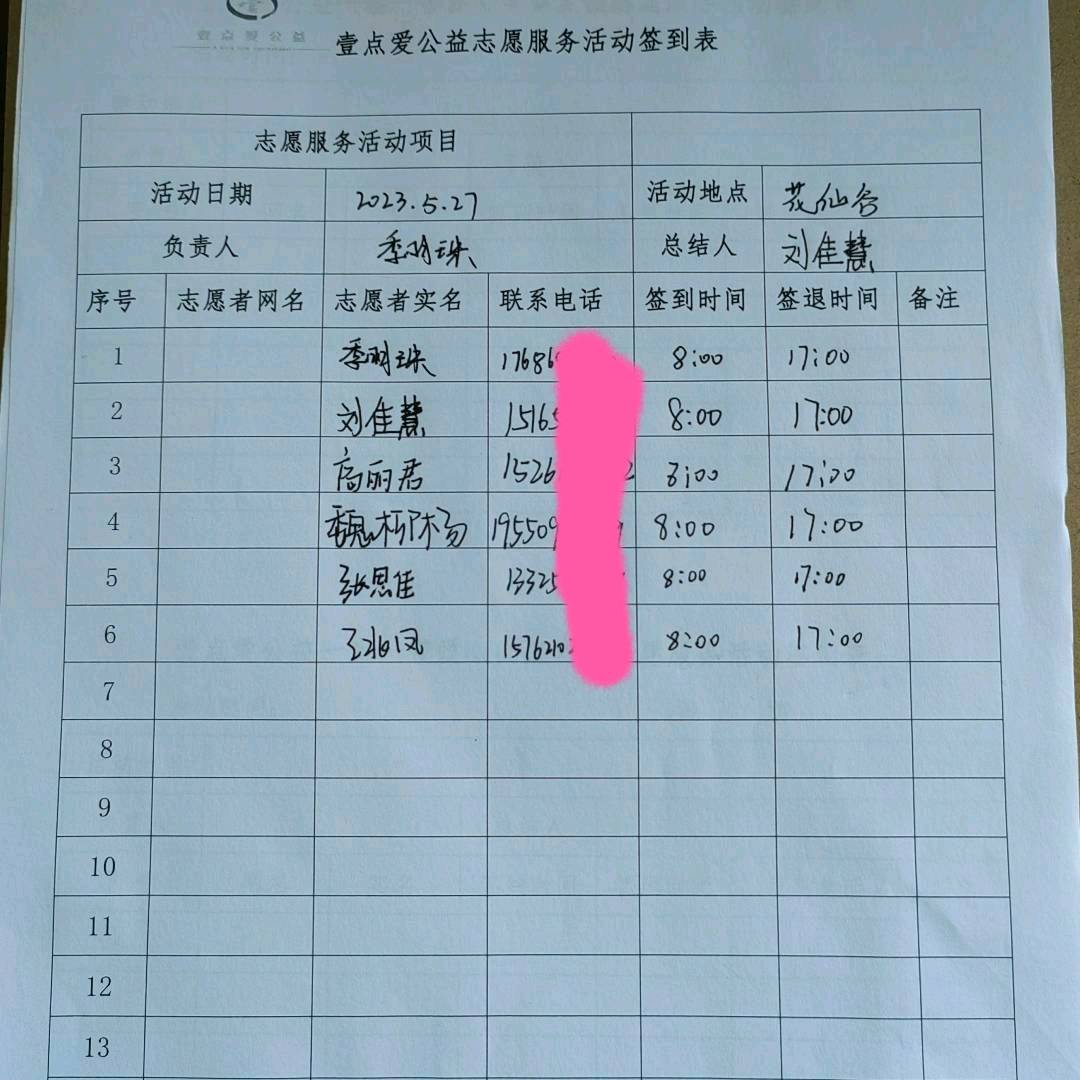 壹点爱公益
壹点爱公益志愿服务活动签到表
志愿服务活动项目
活动日期 2023.5.27 活动地点 花仙谷
负责人 季羽珠 总结人 刘佳慧
序号 志愿者网名 志愿者实名 联系电话 签到时间 签退时间 备注
1 季羽珠 17686 8:00 17:00
2 刘佳慧 15165 8:00 17:00
3 高丽君 1526 2 8:00 17:00
4 魏 杨 195509 8:00 17:00
5 张思佳 13325 8:00 17:00
6 王 凤 1576210 8:00 17:00
7
8
9
10
11
12
13